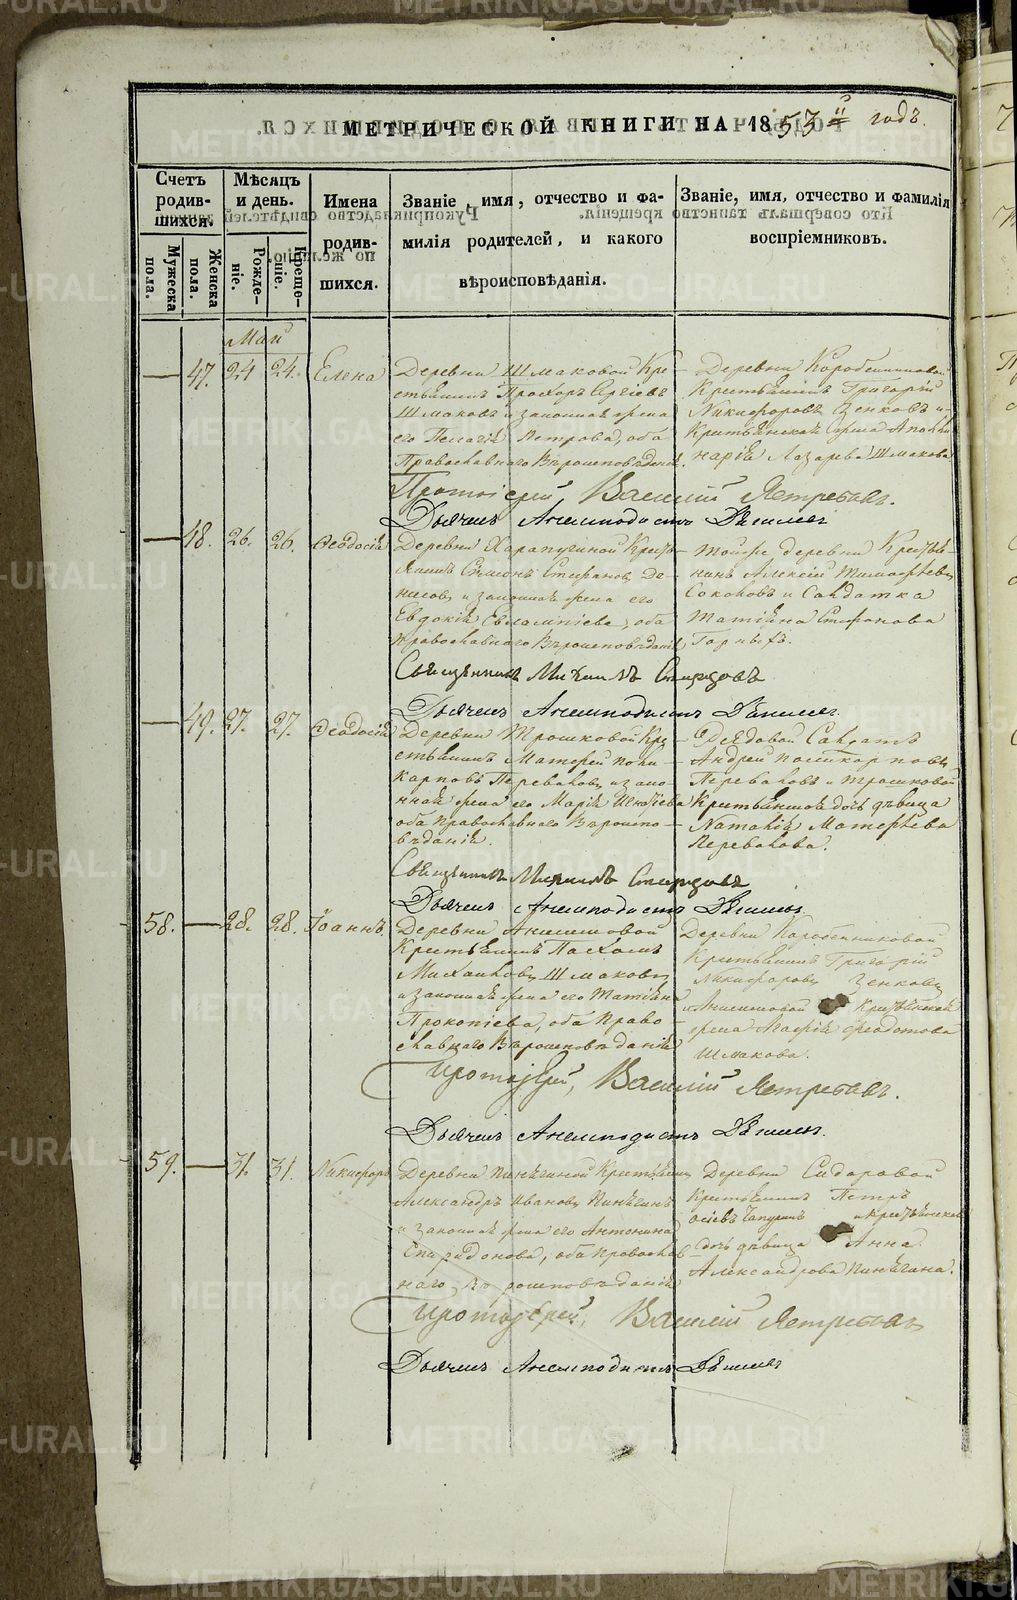 МЕТРИЧЕСКОЙ КНИГИ НА 1853й годъ.
Счетъ родив-шихся.
Мужеска пола.
Женска пола.
Мѣсяцъ и день.
Рожде-ніе.
Креще-ніе.
Имена родив-шихся.
Званіе, имя, отчество и фа-
милія родителей, и какого
вѣроисповѣданія.
Званіе, имя, отчество и фамилія
воспріемниковъ.
Май
47. 24 24. Елена
Деревни Шмаковой Кре-
стьянинъ Прохоръ Сергіевъ
Шмаковъ и законная жена
его Пелагія Петрова, оба
Православнаго Вѣроисповѣданія.
Деревни Коробейниковой
Крестьянинъ Григорій
Никифоровъ Зенковъ и
Крестьянская жена Аполли-
нарія Лазарева Шмакова
Протоіерей, Василій Ястребовъ.
Дьячекъ Анемподистъ
48. 26. 26. Ѳеодосія
Деревни Харапугиной Кресть-
янинъ Симеонъ Стефановъ Де-
нисовъ и законная жена его
Евдокія Евлампіева, оба
Православнаго Вѣроисповѣданія
Тойже деревни Крестья-
нинъ Алексій Тимофѣевъ
Соколовъ и Солдатка
Татіяна Стефанова
Горныхъ.
Священникъ Михаилъ Стирдовъ
Дьячекъ Анемподистъ
49. 27. 27. Ѳеодосія
Деревни Трошковой Кре-
стьянинъ Матфей Поли-
карповъ Переваловъ и зако-
нная жена его Марія Игнатіева
оба Православнаго Вѣроиспо-
вѣданія.
Рядовой Солдатъ
Андрей Поликарповъ
Переваловъ и Трошковой
Крестьянская дочь дѣвица
Наталія Матфѣева
Перевалова.
Священникъ Михаилъ
Дьячекъ Анемподистъ
58. 28. 28. Іоаннъ.
Деревни Анисимовой
Крестьянинъ Пахомъ
Михаиловъ Шмаковъ
и законная жена его Татіяна
Прокопіева, оба Право-
славнаго Вѣроисповѣданія
Деревни Коробейниковой
Крестьянинъ Григорій
Никифоровъ Зенковъ
Анисимовой Крестьянская
жена Агафія Феодотова
Шмакова.
Протоіерей, Василій Ястребовъ.
Дьячекъ Анемподистъ
59. 31. 31. Никифоръ
Деревни Пинягиной Крестьянинъ
Александръ Ивановъ Пинягинъ
и законная жена его Антонина
Спиридонова, оба Православ-
наго Вѣроисповѣданія
Деревни Сидоровой
Крестьянинъ Петръ
Осіевъ и Крестьянская
дочь дѣвица Анна
Александрова Пинягина.
Протоіерей, Василій Ястребовъ
Дьячекъ Анемподистъ
METRIKI.GASO-URAL.RU